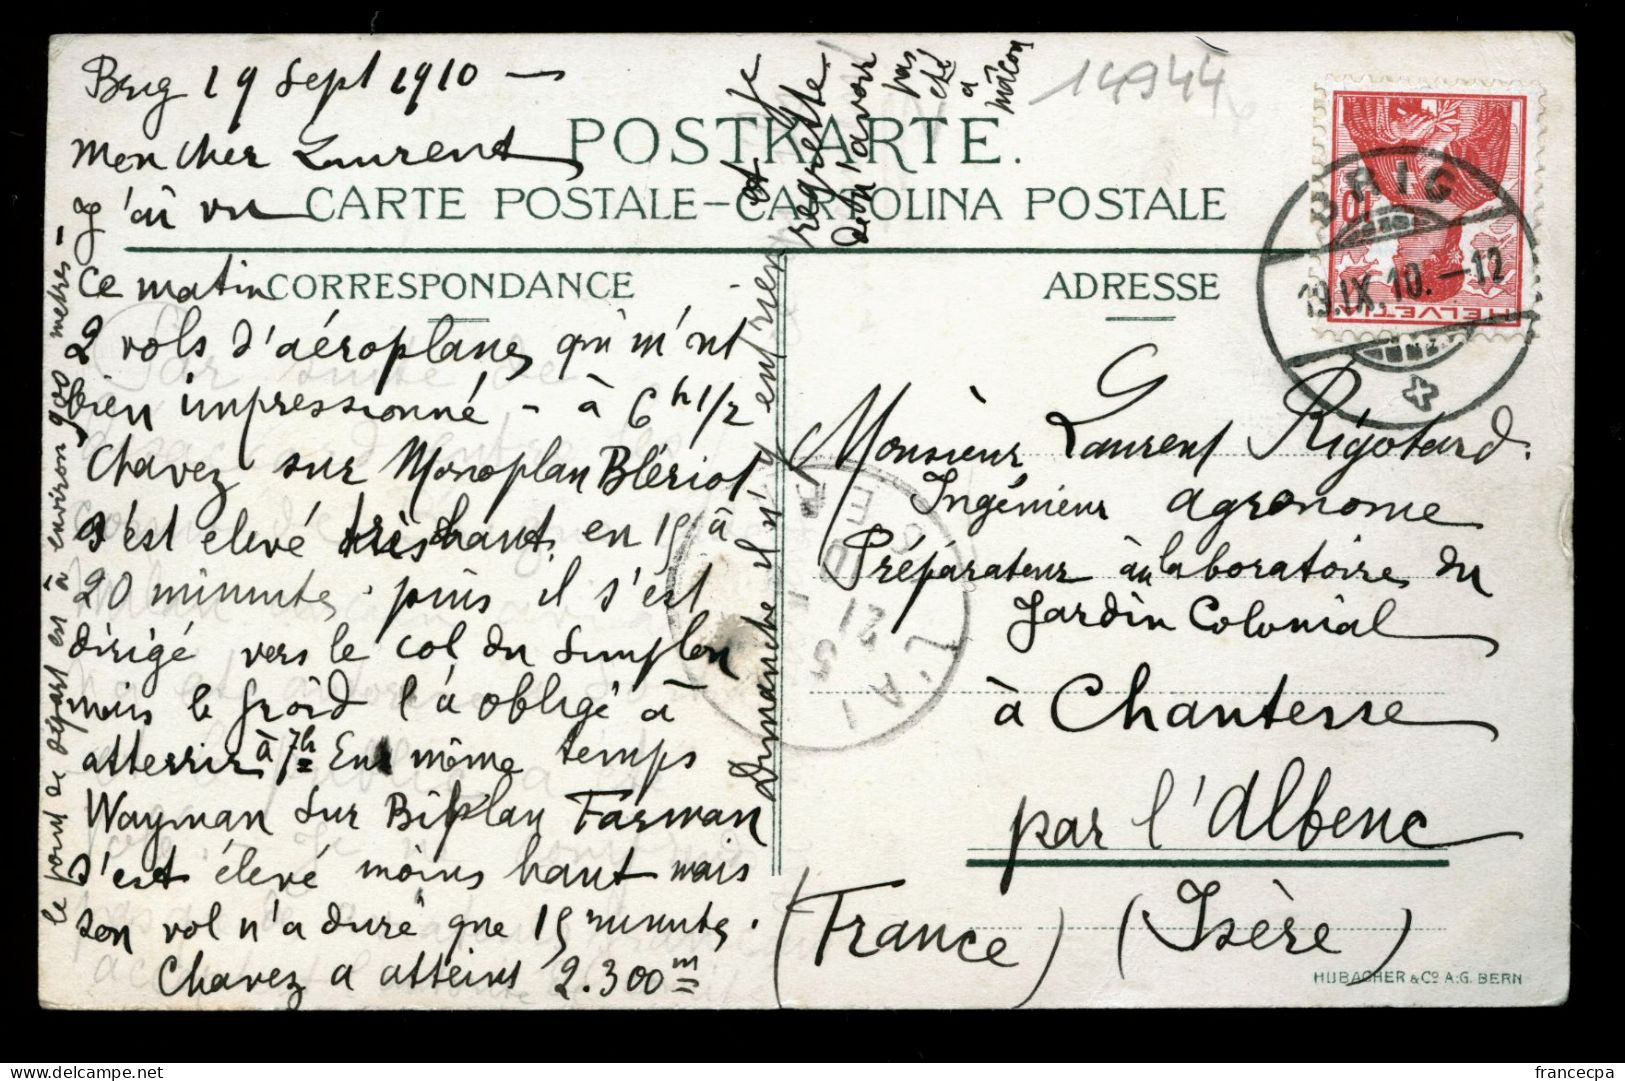 Brig 19 Sept 1910 —
Mon cher Laurent
J'ai vu
ce matin
2 vols d'aéroplanes qui m'nt
bien impressionné - à 6h 1/2
Chavez sur Monoplan Blériot
s'est élevé très haut en 15 à
20 minutes. puis il s'est
dirigé vers le col du Simplon
mais le froid l'a obligé à
atterrir à 7h En même temps
Wayman sur Biplan Farman
s'est élevé moins haut mais
son vol n'a duré que 15 minutes.
Chavez a atteint 2.300m
le point de départ est à environ 900 metres -
Dimanche il n'y eut rien
et je
regrette
de n'avoir
pas
été
à
mâcon
14944
POSTKARTE.
CARTE POSTALE-CARTOLINA POSTALE
CORRESPONDANCE
ADRESSE
HELVETIA
10
BRIG
19.IX.10.-12
Monsieur Laurent Rigotard.
Ingénieur agronome
Préparateur au laboratoire du
Jardin Colonial
à Chantesse
par l'Albenc
(France) (Isère)
HUBACHER & Co A.G. BERN
21
francecpa
delcampe.net